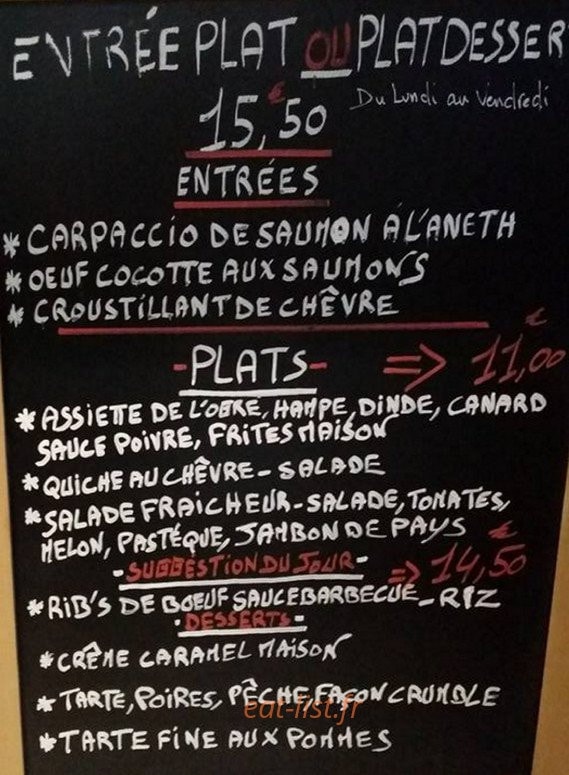 ENTRÉE PLAT OU PLAT DESSER
Du Lundi au Vendredi
15,50 €
ENTRÉES
* CARPACCIO DE SAUMON À L'ANETH
* OEUF COCOTTE AUX SAUMONS
* CROUSTILLANT DE CHÊVRE
-PLATS- => 11,00 €
* ASSIETTE DE L'OBRE, HAMPE, DINDE, CANARD
SAUCE POIVRE, FRITES MAISON
* QUICHE AU CHÊVRE - SALADE
* SALADE FRAICHEUR - SALADE, TOMATES,
MELON, PASTÉQUE, JAMBON DE PAYS
- SUGGESTION DU JOUR - => 14,50 €
* RIB'S DE BOEUF SAUCE BARBECUE - RIZ
- DESSERTS -
* CRÊME CARAMEL MAISON
* TARTE, POIRES, PÊCHE FAÇON CRUMBLE
eat-list.fr
* TARTE FINE AUX POMMES